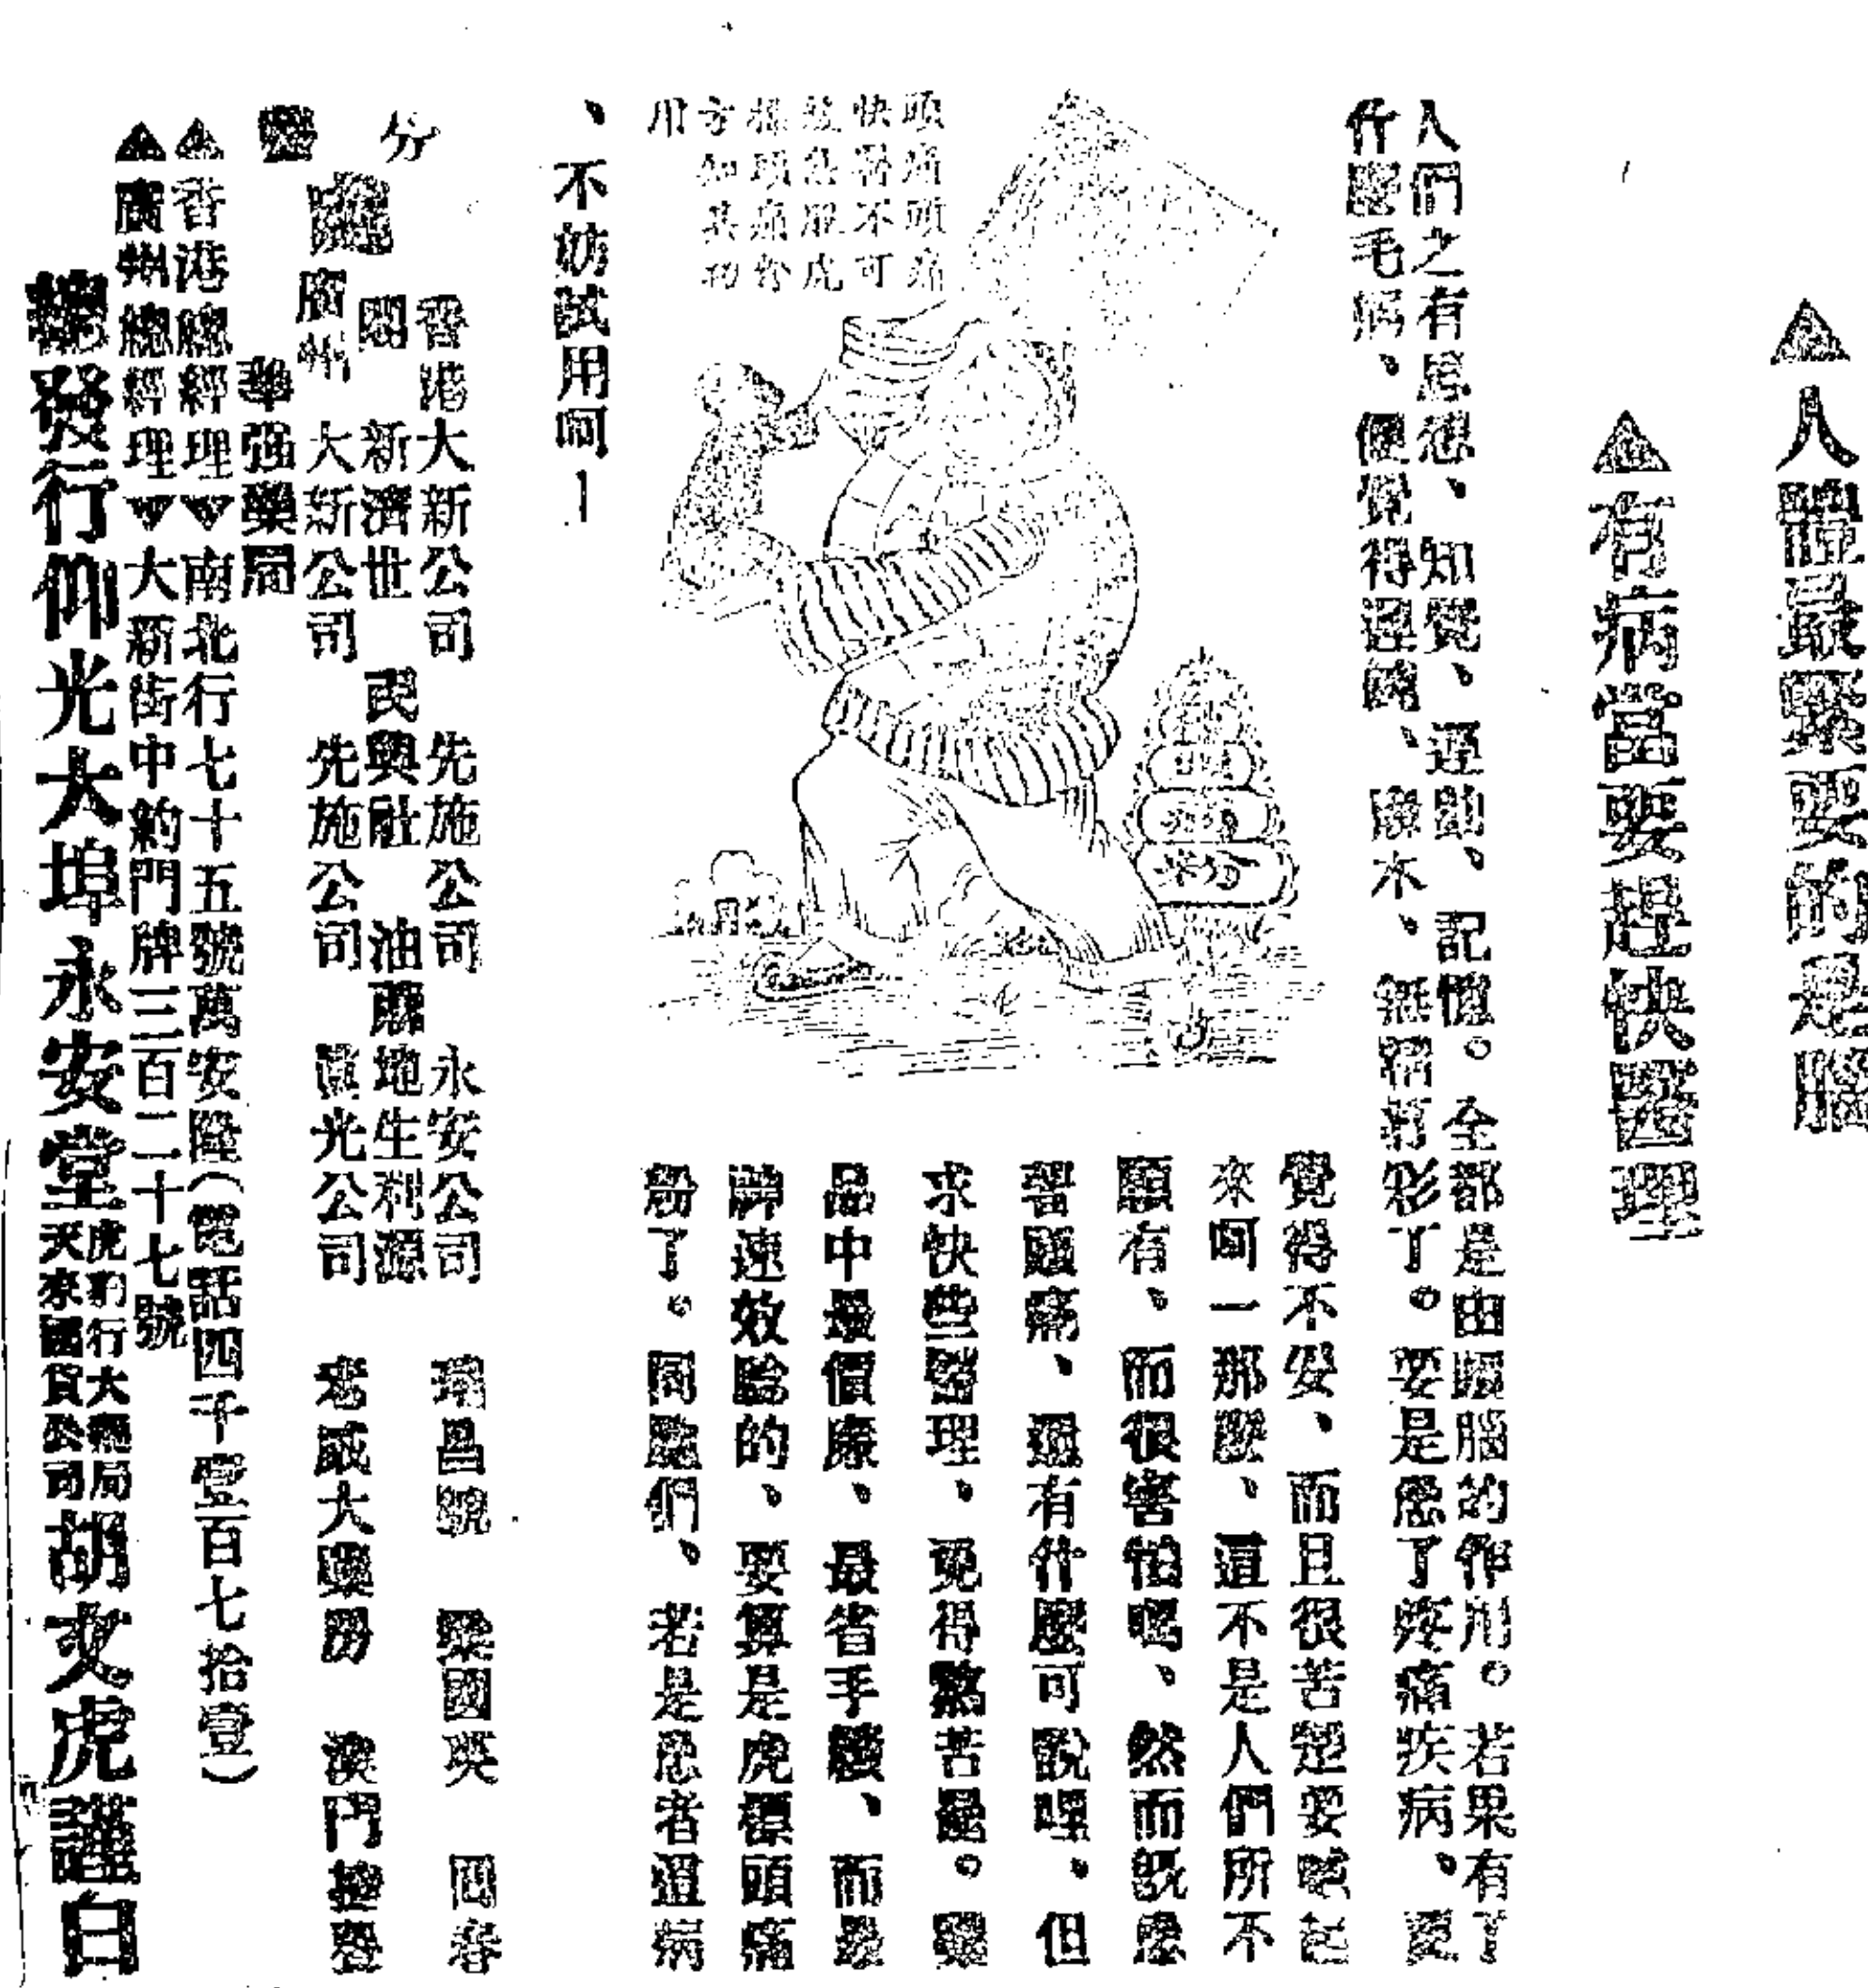 ▲人體最緊要的是腦
▲有病當要趕快醫理
人們之有思想、知覺、運動、記憶。全部是由頭腦的作用。若果有了
什麼毛病、便覺得遲鈍、麻木、無精打彩了。要是患了疼痛疾病、更
覺得不安、而且很苦楚要嘆起
來呵一那麼、這不是人們所不
願有、而很害怕嗎、然而既患
着頭痛、還有什麼可說哩。但
求快些醫理、免得熬苦是。藥
品中最價廉、最省手續、而最
神速效驗的、要算是虎標頭痛
粉了。同胞們、若是患者這病
頭痛頭痛
快醫不可
放急服虎
標頭痛粉
方知其功
用
、不妨試用呵！
分
香港大新公司 先施公司 永安公司 瑞昌號 梁國英 回春
新濟世 民興社 油蔴地生利源
處
廣州 大新公司 先施公司 真光公司 老威大藥房 澳門
華强藥局
▲香港總經理▼南北行七十五號萬安隆（電話四千壹百七拾壹）
▲廣州總經理▼大新街中約門牌三百二十七號
總發行仰光大埠永安堂虎豹行大藥局天來國貨公司胡文虎謹白